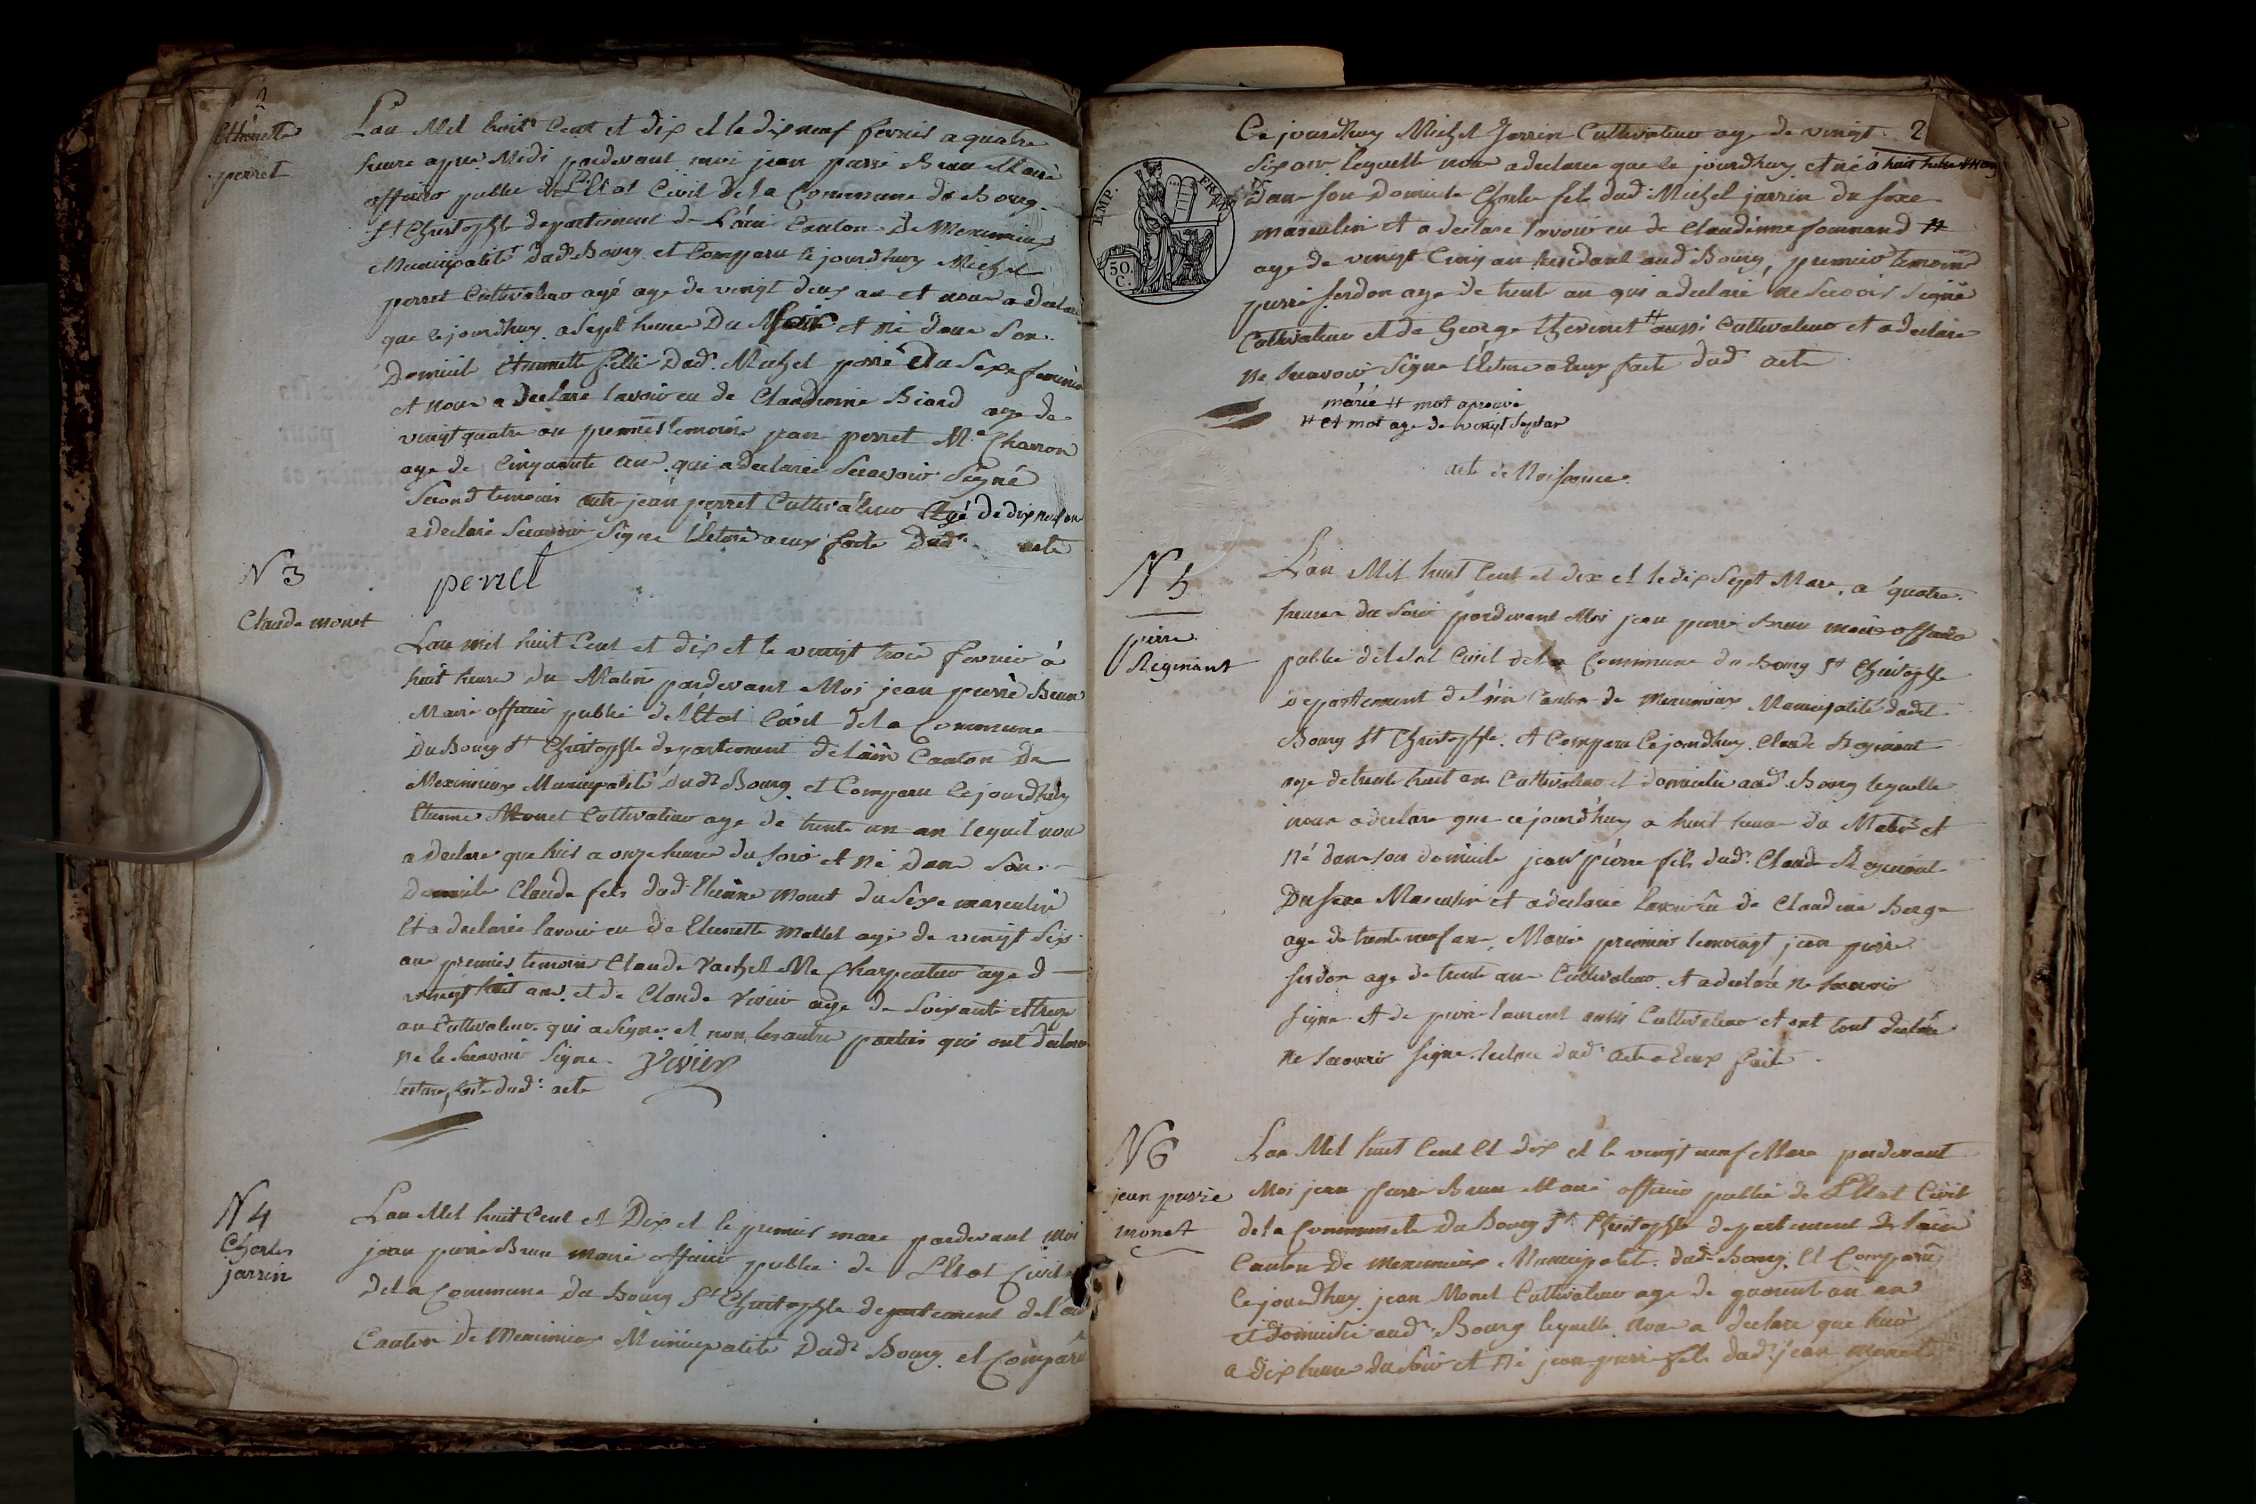 2
Ethienette
perret
L'an Mil huit Cent et dix et le dix neuf fevrier a quatre
heure apres Midi pardevant moi jean pierre Brun Maire
officier public de L'Etat Civil de la Commune du Bourg
St Christophle departement de L'ain Canton De Meximieux
Municipalité dud. Bourg et Comparu le jourdhuy Michel
perret Cultivateur agé age de vingt deux an et nous a declaré
que le jourdhuy a Sept heure Du et né dans Son
Domicile fille Dud. Michel perret Du Sexe feminin
et nous a declare lavoir eu de Claudinne Biard age de
vingt quatre an premier temoins jean perret Me Charron
age de Cinquante an qui a declaree Scavoir Signé
Second temoins jean perret Cultivateur Agé de dix neuf an
a declaré Scavoir Signe Lécture a eux faite Dud. acte
perret
N 3
Claude monet
L'an mil huit Cent et dix et le vingt trois fevrier à
huit heure du Matin pardevant Moi jean pierre Brun
Maire officier public de L'Etat Civil de la Commune
Du Bourg St Christophle departement de Lain Canton De
Meximieux Municipalité dud. Bourg et Comparu le jourdhuy
Etienne Monet Cultivateur age de trente un an lequel nou
a declare que hier a onze heure du soir et né dans Son
Domicile Claude fils dud. Etienne Monet du Sexe masculin
et a declarée lavoir eu de Etienette Mallet agé de vingt Six
an premier temoins Claude Vachet Me Charpentier age d
vingt huit ans et de Claude Vivier age de Soixante et treize
an Cultivateur qui a Signe et non les autre parties qui ont declaré
ne le Scavoir Signe Vivier
lecture faite dud. acte
N 4
Charles
jarrin
L'an Mil huit Cent et Dix et le premier mars pardevant Moi
jean pierre Brun maire officier public de L'Etat Civil
de la Commune Du Bourg St Christophle departement de l'ain
Canton De Meximieux Municipalité Dud. Bourg et Comparu
2
Ce jourdhuy Michel Jarrin Cultivateur age de vingt
Six an lequelle nous a declaree que le jourdhuy et né a huit heure
Dans Son Domicile Charle fils dud. Michel jarrin du Sexe
masculin et a declare lavoir eu de Claudinne #
age de vingt Cinq an residant aud. Bourg, premier temoins
pierre ferdon age de trente an qui a declaré ne Scavoir Signé
Cultivateur et de George thevenet # aussi Cultivateur et a declare
ne Scavoir Signe Lécture a eux faite dud. acte
EMP. FRAN.
50 C.
mariée # mot aprouvé
# et mot age de vingt Sept an
acte de Naissance
N 5
pierre
Reginant
L'an Mil huit Cent et dix et le dix Sept Mars a quatre
heure du Soir pardevant Moi jean pierre Brun maire officier
public de letat Civil de la Commune du Bourg St Christophle
departement de l'ain Canton de Meximieux Municipalité dudit
Bourg St Christophle et Comparu Cejourdhuy Claude Reginant
age de trente huit an Cultivateur et domicilie aud. Bourg lequelle
nous a declare que cejourd'huy a huit heure du Matin et
né dans son domicile jean pierre fils dud. Claude Reginant
Du Sexe Masculin et a declaree lavoir eu de Claudine Berge
age de trente neuf ans, Mariée premier temoingt jean pierre
ferdon age de trente an Cultivateur et a declaré ne Scavoir
Signe et de pierre laurent aussi Cultivateur et ont tout declaré
ne Scavoir Signe. lecture dud. acte a Eux faite
N 6
jean pierre
monet
L'an Mil huit Cent Et dix et le vingt neuf Mars pardevant
Moi jean pierre Brun Maire officier public de L'Etat Civil
de la Commune Du Bourg St Christophle departement de lain
Canton De Meximieux Municipalité dud. Bourg Et Comparu
Cejourdhuy jean Monet Cultivateur age de quarent un an
et domicilié aud. Bourg lequelle nous a declare que hier
a dix heure du Soir et né jean pierre fils dud. jean monet